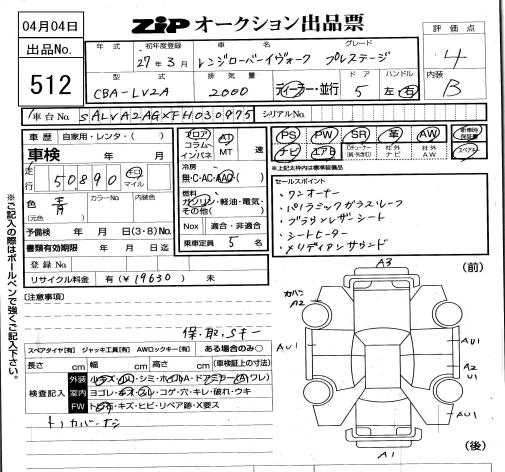 04月04日
ZIP オークション出品票
評価点
出品No.
512
年式 初年度登録 車名 グレード
27年3月 レンジローバーイヴォーク プレステージ
4
型式 排気量 ディーラー・並行 ドア ハンドル
CBA-LV2A 2000 5 左・右
内装
B
車台No. SALVA2AGXFH030975 シリアルNo.
車歴 自家用・レンタ・( )
車検 年 月
走行 50890 キロ マイル
色 青 カラーNo 内装色
(元色)
予備検 年 月 日(3・8)No.
書類有効期限 年 月 日迄
登録No.
リサイクル料金 有(¥19630) 未
フロア AT 速
コラム
インパネ MT
冷房
無・C・AC・AAC( )
燃料
ガソリン・軽油・電気・
その他( )
Nox 適合・非適合
乗車定員 5 名
PS PW SR 革 AW 新車時保証書
ナビ エアB 社外ナビ 社外AW スペアキー
※上記太枠内は標準装備品
セールスポイント
・ワンオーナー
・パノラミックガラスルーフ
・ブラウンレザーシート
・シートヒーター
・メリディアンサウンド
※ご記入の際はボールペンで強くご記入下さい。
(注意事項)
保・取・Sキー
スペアタイヤ[有] ジャッキ工具[有] AWロックキー[有] ある場合のみ〇
長さ cm 幅 cm 高さ cm (車検証上の寸法)
検査記入
外装 小キズ・小凹・シミ・ホイルA・ドアミラー(A・ワレ)
室内 ヨゴレ・キズ・スレ・コゲ・穴・キレ・破れ・ウキ
FW トビ石・キズ・ヒビ・リペア跡・X要ス
トノカバーナシ
A3
(前)
カバン
A2
AU1
AU1
A2
U1
AU1
A1
(後)